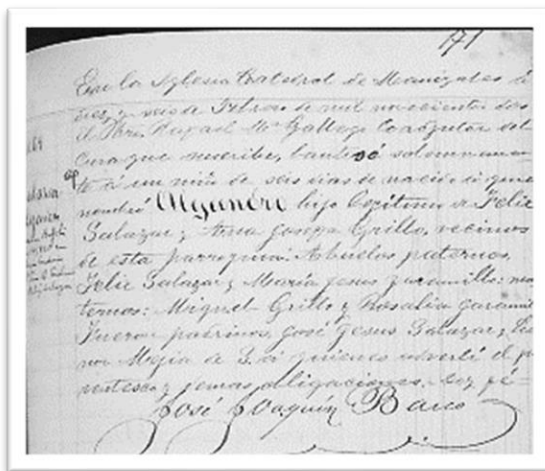 171
En la Iglesia Catedral de Manizales á
diez y seis de Febrero de mil novecientos dos
el Pbro. Rafael Mª Gallego Coadjutor del
Cura que suscribe, bautizó solemnemen
te á un niño de seis dias de nacido á quien
nombró Alejandro hijo legítimo de Felix
Salazar y Ana Josefa Grillo, vecinos
de esta parroquia. Abuelos paternos,
Felix Salazar y María Jesus Jaramillo: ma
ternos: Miguel Grillo y Rosalia Jaramill
Fueron padrinos, José Jesus Salazar y
nor Mejia de S. á quienes advertí el p
rentesco y demas obligaciones. Doy fé-
José Joaquín Baco